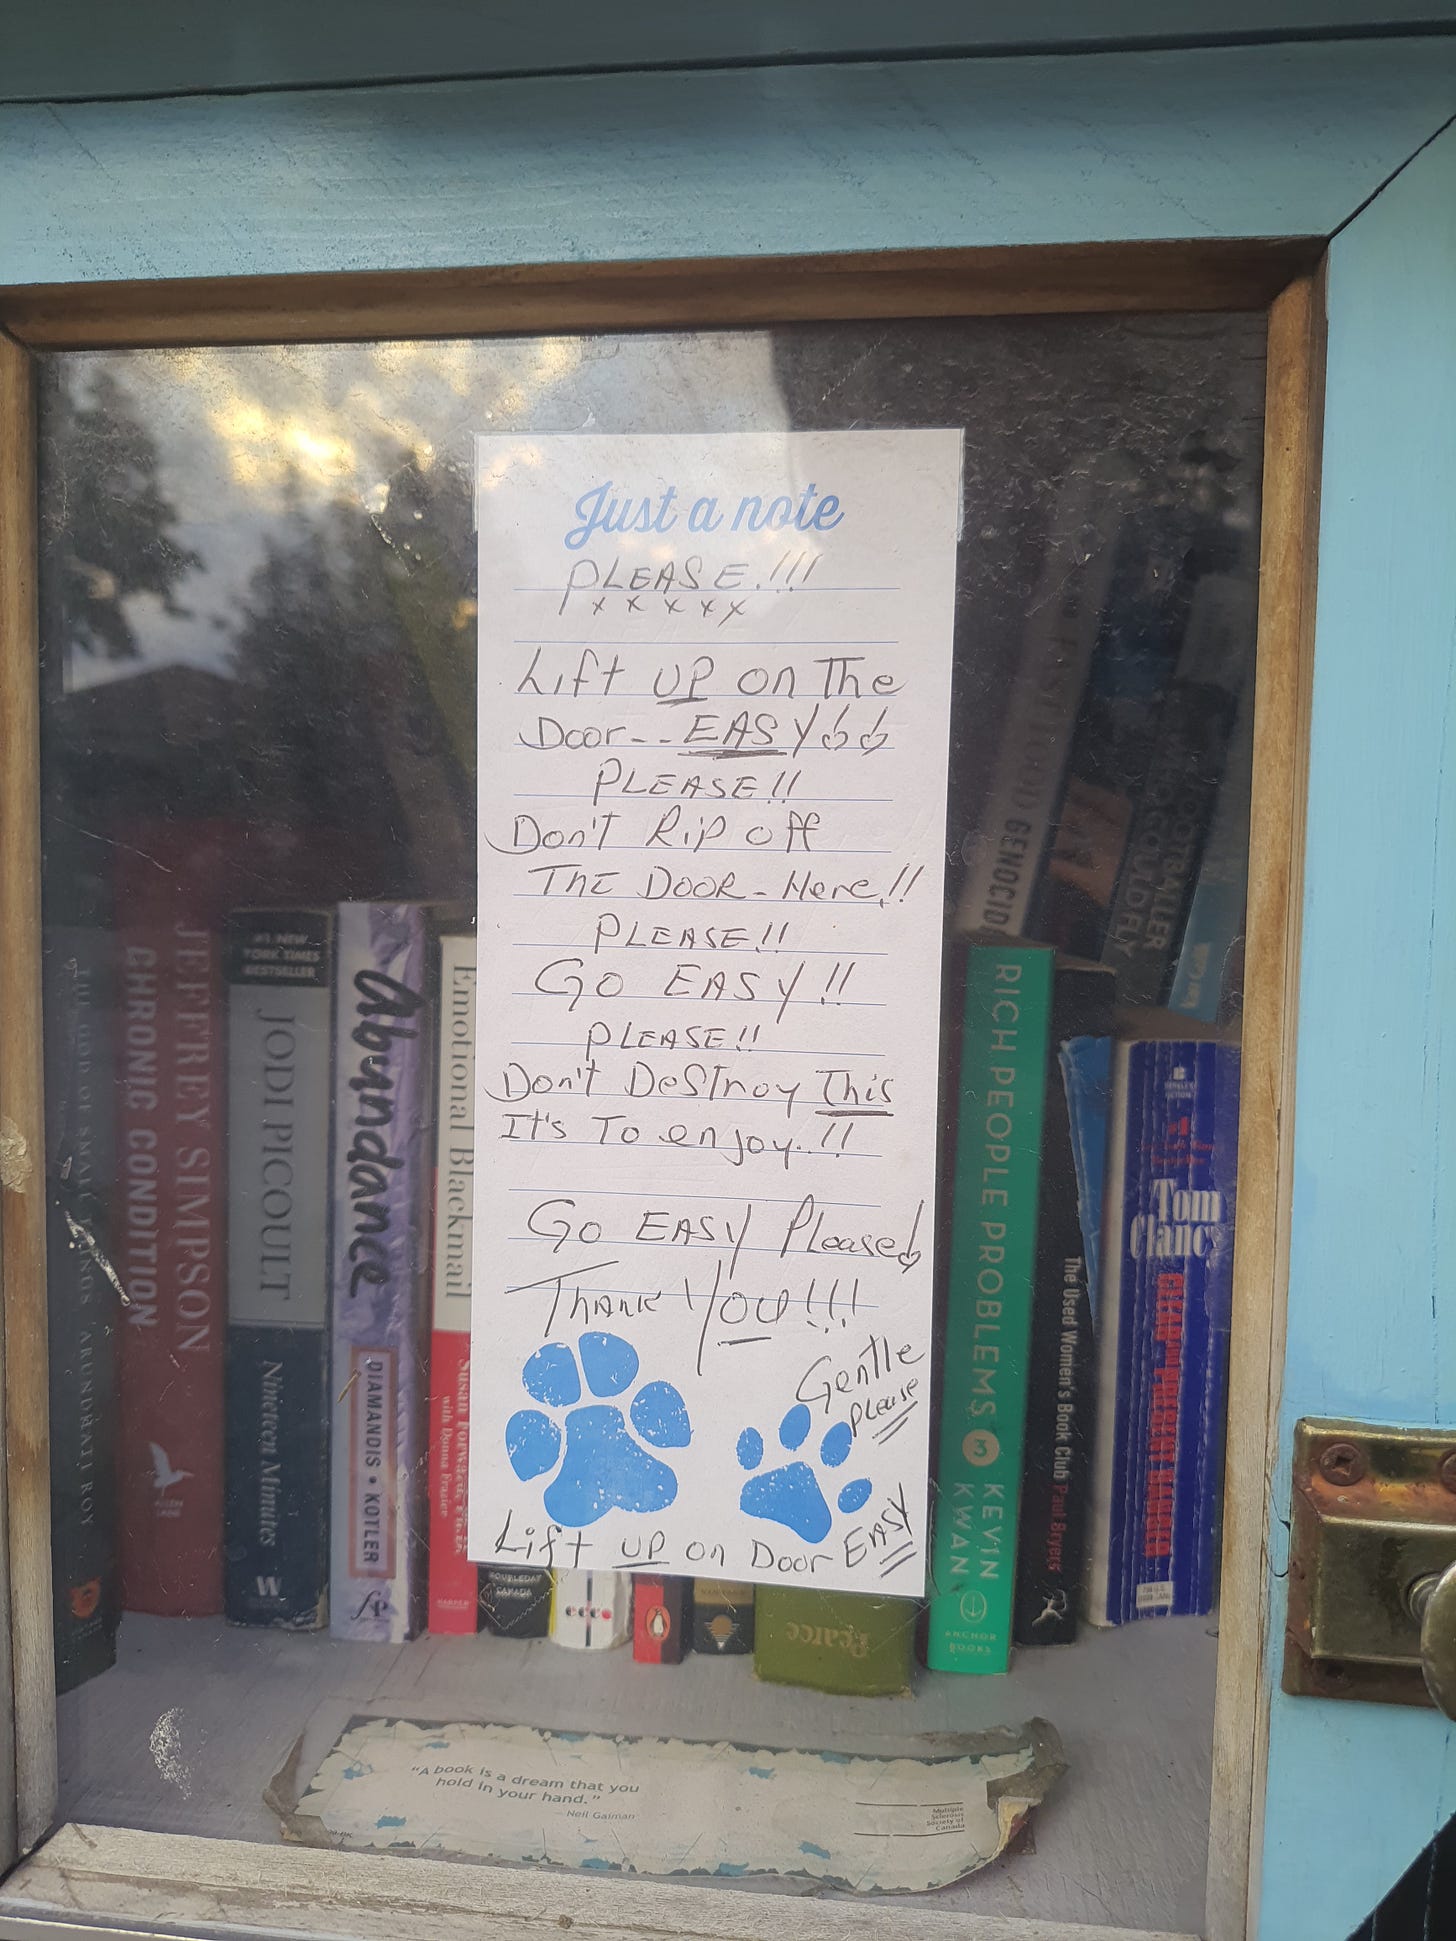 Just a note
PLEASE.!!!
x x x x x
Lift UP on The
Door-- EASY
PLEASE!!
Don't Rip off
THE DOOR - Here.!!
PLEASE!!
GO EASY!!
PLEASE!!
Don't DeSTroy This
It's To enjoy..!!
GO EASY Please
THANK YOU!!!
Gentle
please
Lift UP on Door EASY
ARUNDHATI ROY
JEFFREY SIMPSON
CHRONIC CONDITION
ALLEN
LANE
#1 NEW
YORK TIMES
BESTSELLER
JODI PICOULT
Nineteen Minutes
W
Abundance
DIAMANDIS • KOTLER
fp
Emotional Blackmail
Susan Forward, Ph.D.
with Donna Frazier
DOUBLEDAY
CANADA
ecco
Pearce
GENOCID
FOOTBALLER
COULD FLY
RICH PEOPLE PROBLEMS
3
KEVIN
KWAN
ANCHOR
BOOKS
The Used Women's Book Club Paul Bryers
B
BERKLEY
FICTION
#1
Tom
Clancy
"A book is a dream that you
hold in your hand."
Neil Gaiman
Multiple
Sclerosis
Society of
Canada